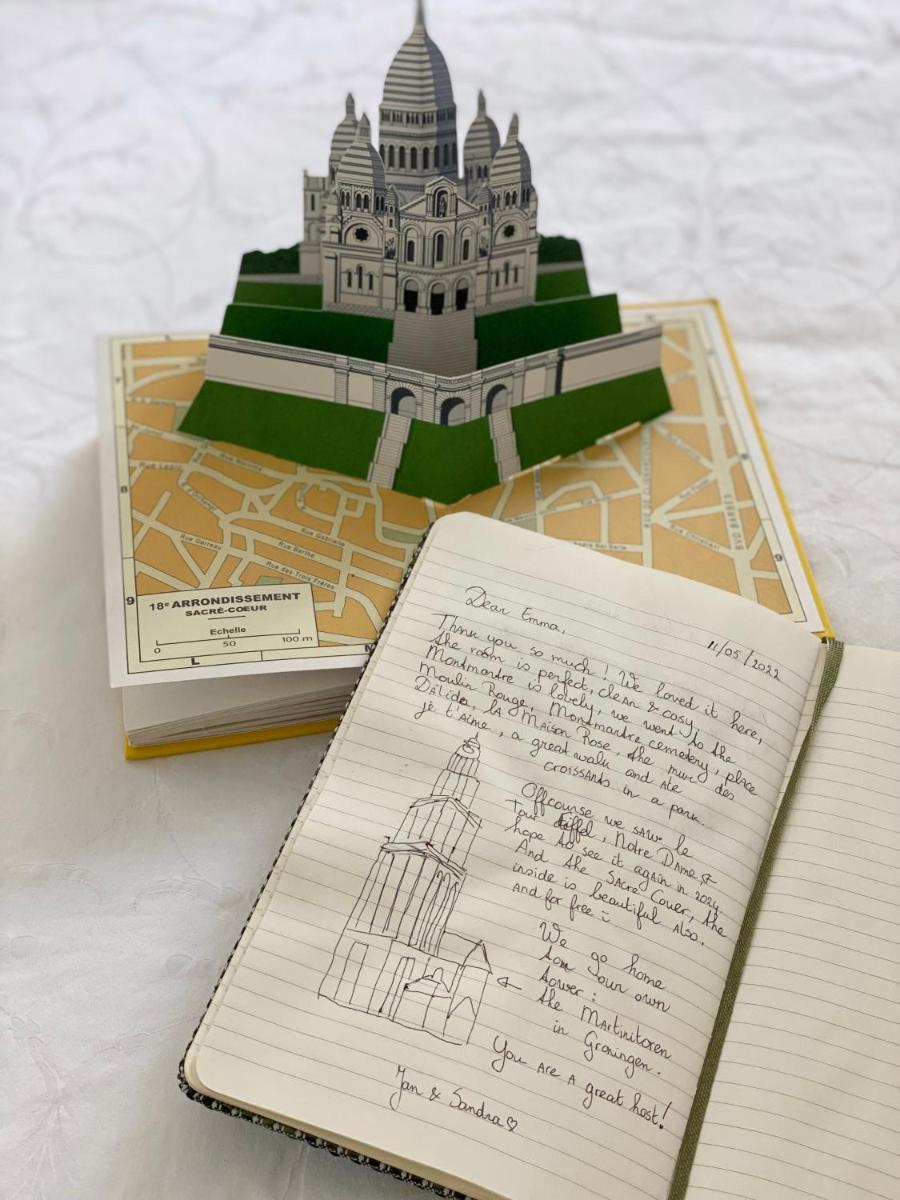 Rue Lepic
Rue Gabrielle
Rue Berthe
Rue Garreau
Rue des Trois Frères
BVD BARBÈS
8
9
9
18e ARRONDISSEMENT
SACRÉ-COEUR
Echelle
0 50 100 m
L
Dear Emma,
11/05/2022
Thank you so much! We loved it here,
the room is perfect, clean & cosy.
Montmartre is lovely, we went to the
Moulin Rouge, Montmartre cemetery, place
Dalida, la Maison Rose, the mur des
je t'aime, a great walk and ate
croissants in a park.
Offcourse we saw le
Tour Eiffel, Notre Dame &
hope to see it again in 2024
And the Sacre Couer, the
inside is beautiful also.
and for free
We go home
to our own
tower:
the Martinitoren
in Groningen.
You are a great host!
Jan & Sandra